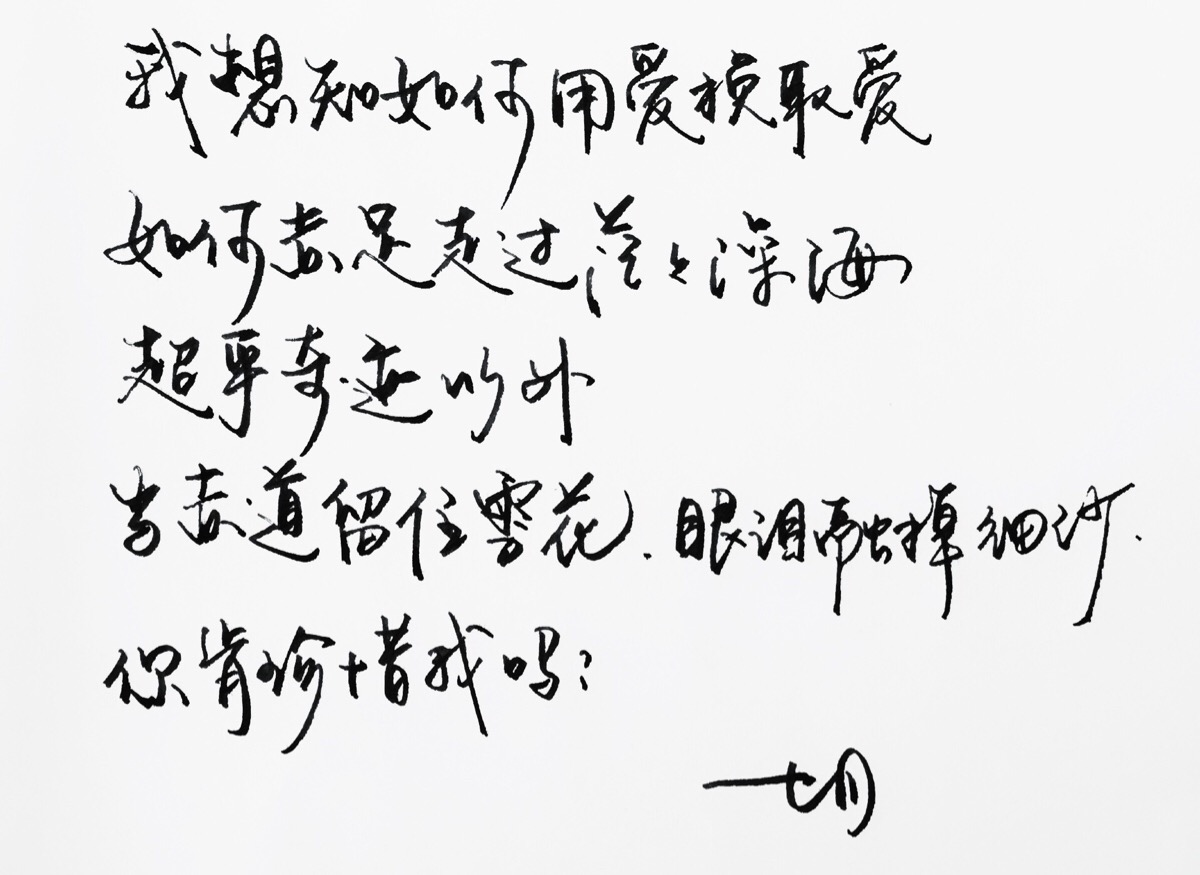 我想知如何用爱换取爱
如何赤足走过茫茫深海
超乎奇迹以外
当赤道留住雪花.眼泪融掉细沙.
你肯珍惜我吗?
七月